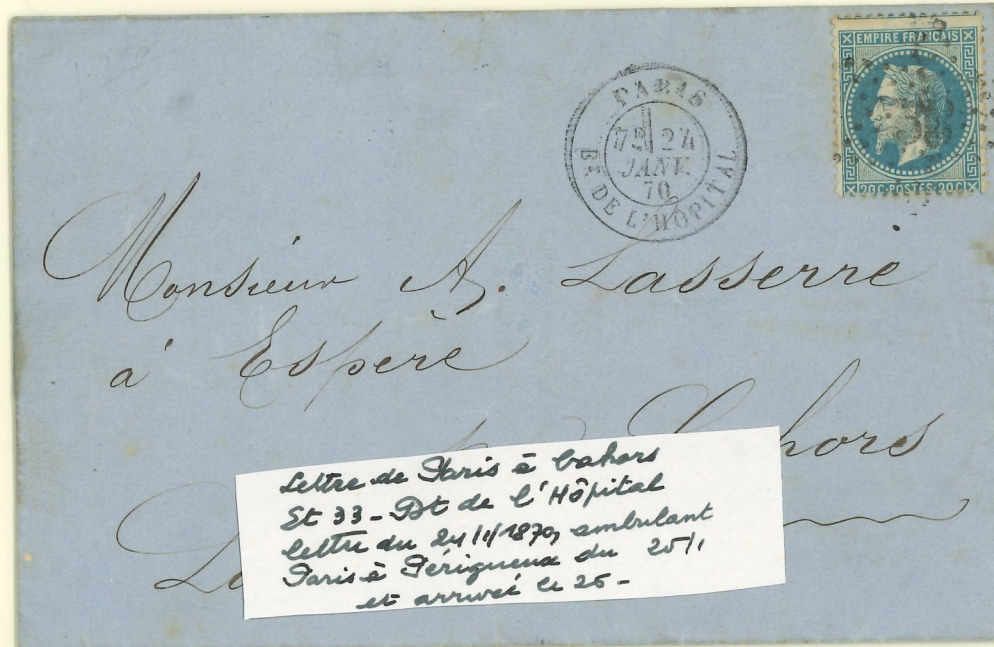 EMPIRE FRANCAIS
20 C - POSTES - 20 C
PARIS
24
JANV.
70
BD DE L'HÔPITAL
Monsieur A. Lasserre
à Espère
Cahors
Lettre de Paris à Cahors
Et 33 - Bt de l'Hôpital
lettre du 24/1/1870, ambulant
Paris à Périgueux du 25/1
et arrivée le 26 -